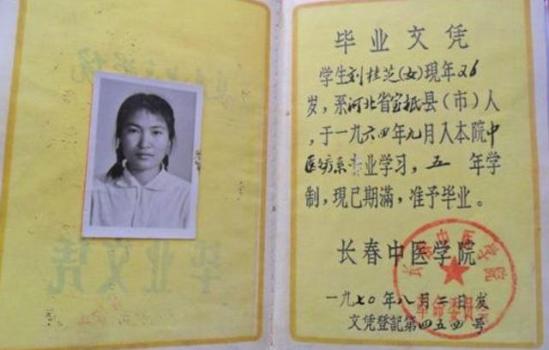 毕业文凭
毕业文凭
学生刘桂芝(女)现年26
岁，系河北省宝坻县(市)人
，于一九六四年九月入本院中
医系专业学习，五年学
制，现已期满，准予毕业。
长春中医学院
长春中医学院
革命委员会
一九七〇年八月二日发
文凭登记第四五四号